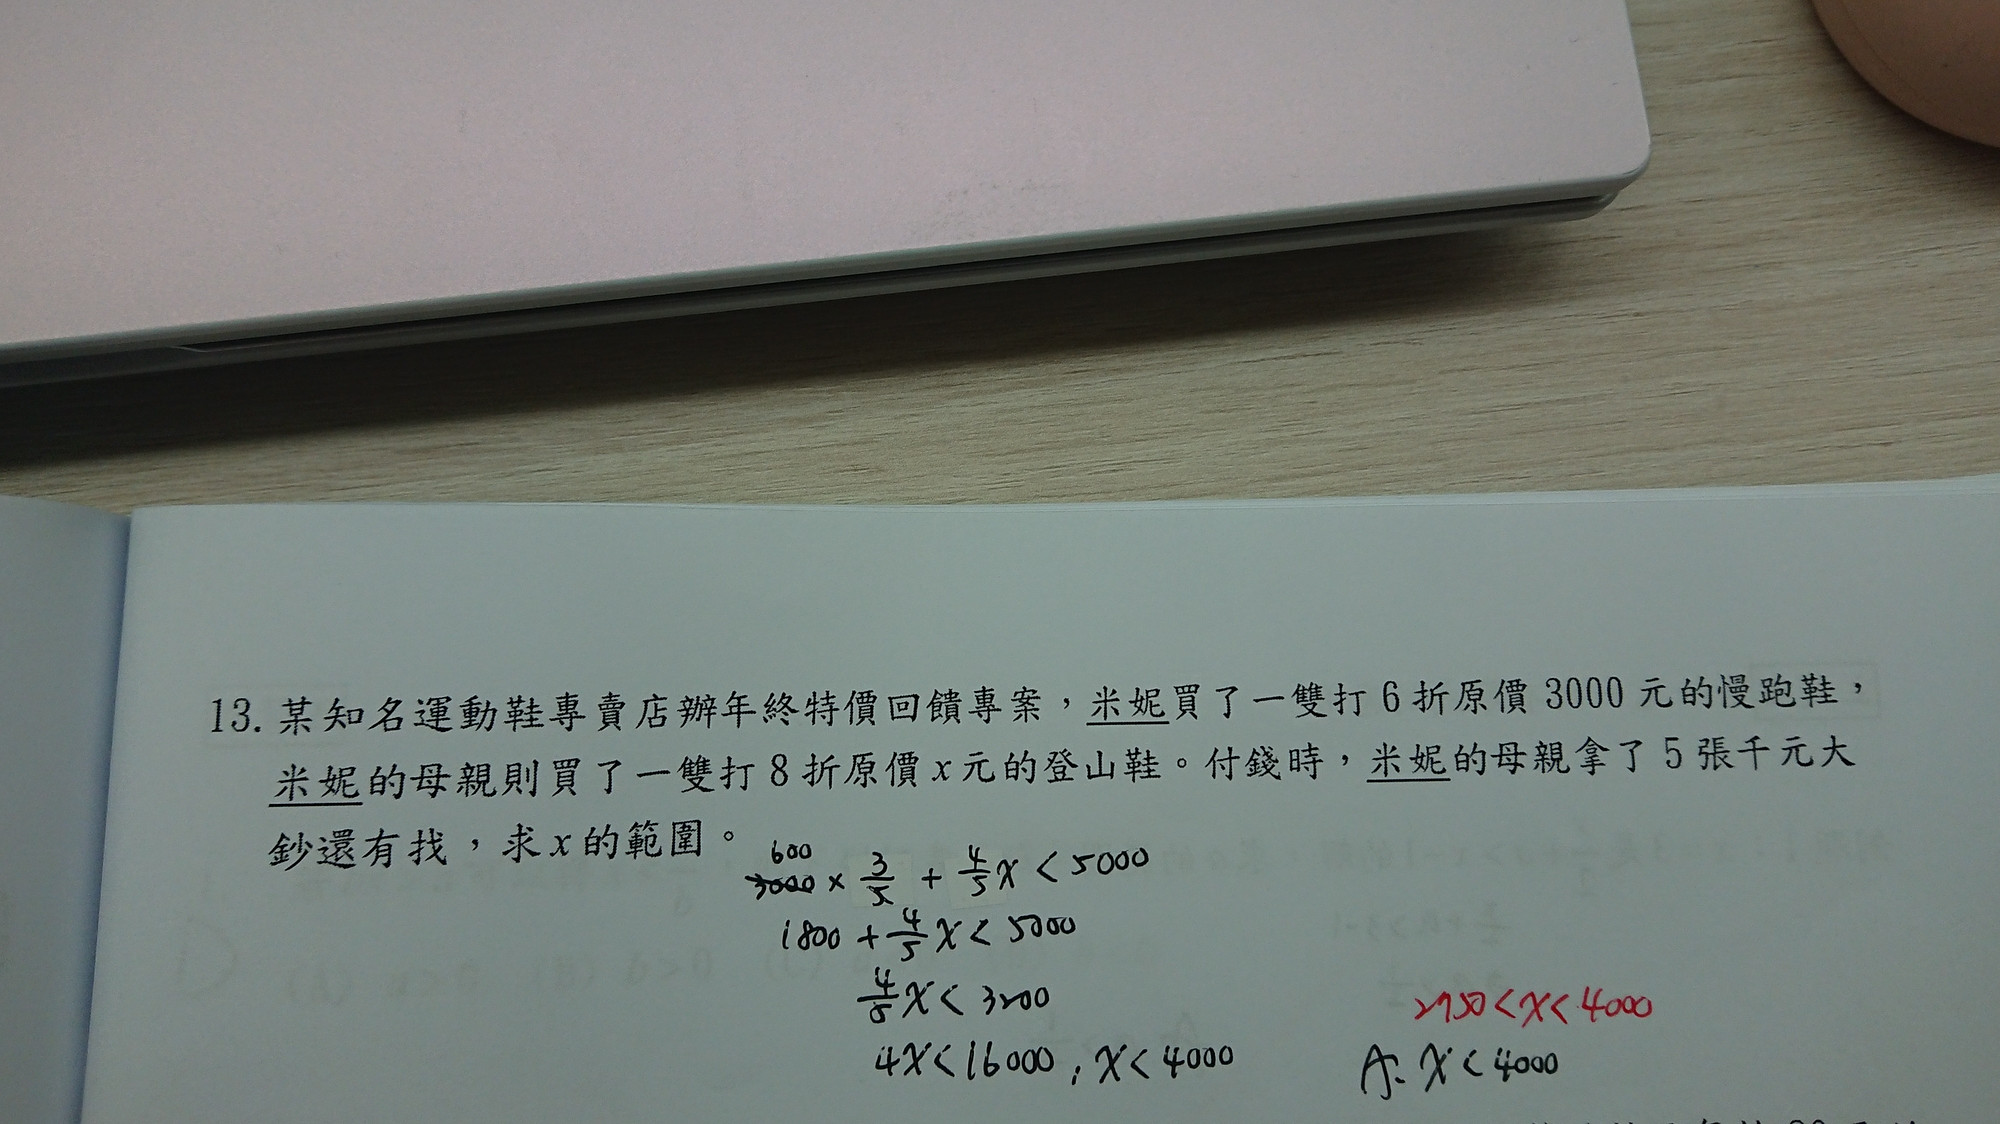 13. 某知名運動鞋專賣店辦年終特價回饋專案，米妮買了一雙打 6 折原價 3000 元的慢跑鞋，
米妮的母親則買了一雙打 8 折原價 x 元的登山鞋。付錢時，米妮的母親拿了 5 張千元大
鈔還有找，求 x 的範圍。
600
3000 × 3/5 + 4/5 x < 5000
1800 + 4/5 x < 5000
4/5 x < 3200
4x < 16000, x < 4000
2750 < x < 4000
A: x < 4000